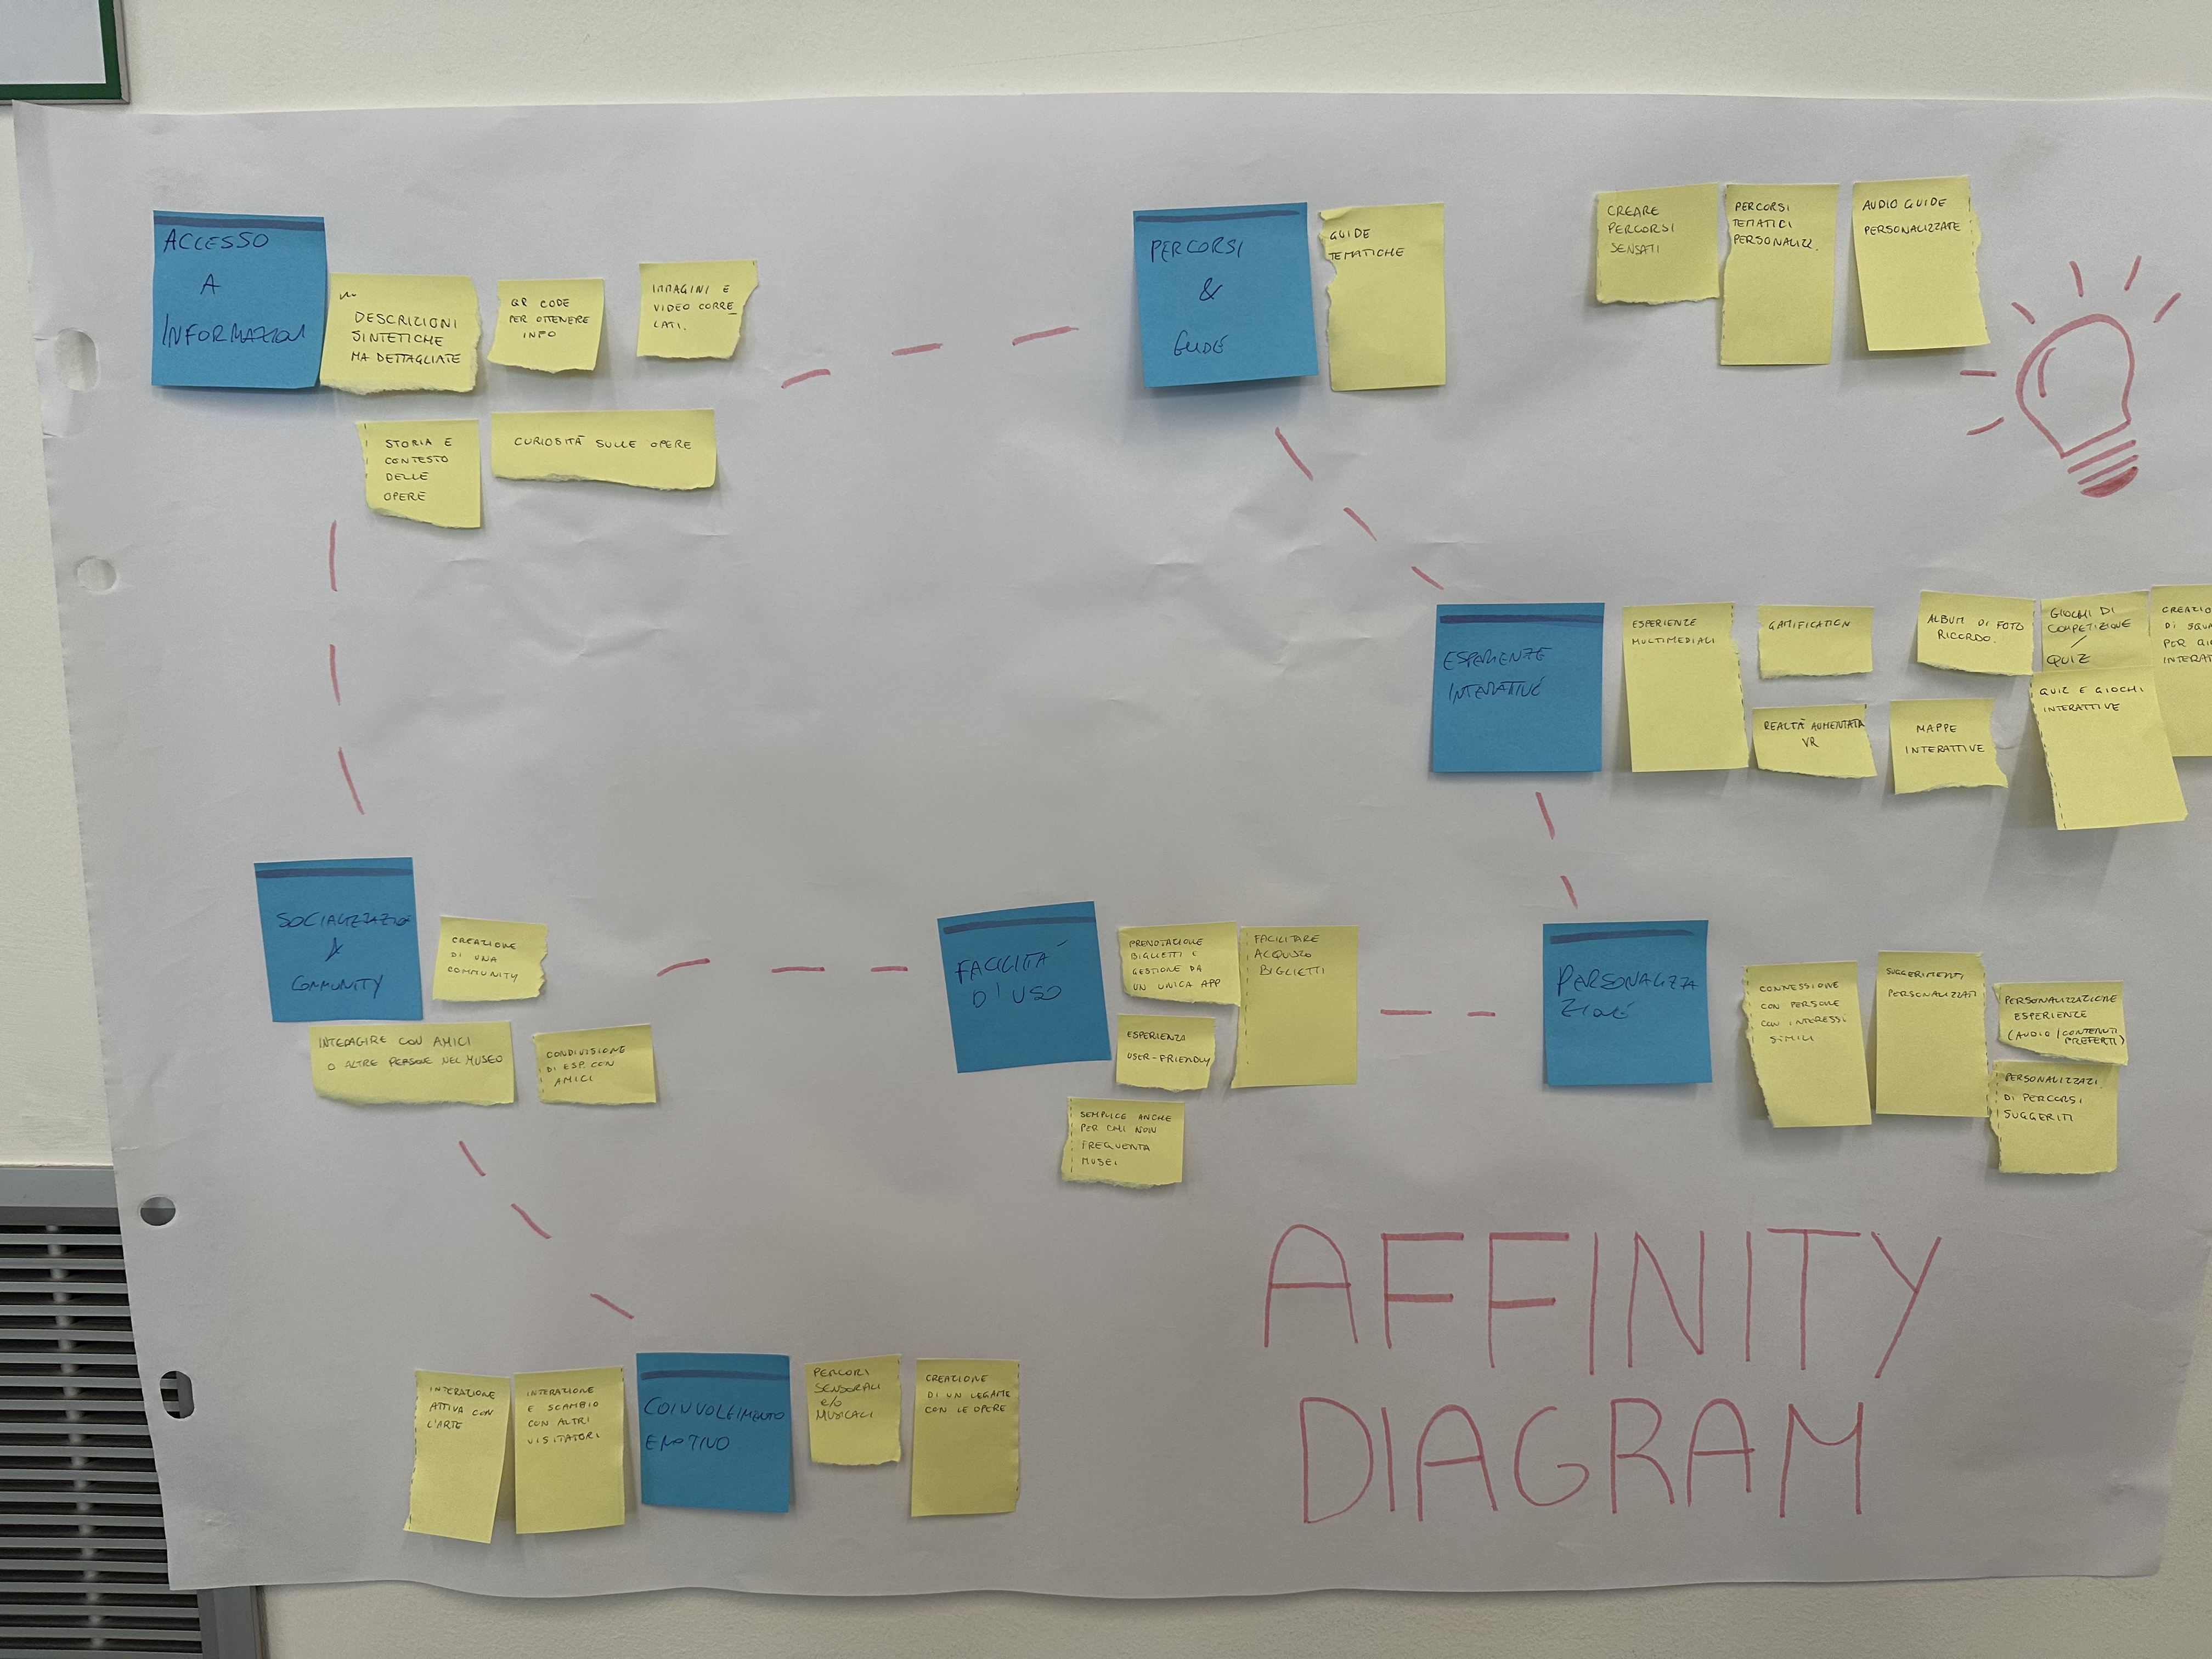 ACCESSO
A
INFORMAZIONI
DESCRIZIONI
SINTETICHE
MA DETTAGLIATE
QR CODE
PER OTTENERE
INFO
IMMAGINI E
VIDEO CORRE
LATI.
STORIA E
CONTESTO
DELLE
OPERE
CURIOSITÀ SULLE OPERE
PERCORSI
&
GUIDE
GUIDE
TEMATICHE
CREARE
PERCORSI
SENSATI
PERCORSI
TEMATICI
PERSONALIZZ.
AUDIO GUIDE
PERSONALIZZATE
ESPERIENZE
INTERATTIVE
ESPERIENZE
MULTIMEDIALI
GAMIFICATION
REALTÀ AUMENTATA
VR
ALBUM DI FOTO
RICORDO.
MAPPE
INTERATTIVE
GIOCHI DI
COMPETIZIONE
/
QUIZ
CREAZIO
DI SQUA
PER GIO
INTERAT
QUIZ E GIOCHI
INTERATTIVE
SOCIALIZZAZIONE
&
COMMUNITY
CREAZIONE
DI UNA
COMMUNITY
INTERAGIRE CON AMICI
O ALTRE PERSONE NEL MUSEO
CONDIVISIONE
DI ESP. CON
AMICI
FACILITÀ
D'USO
PRENOTAZIONE
BIGLIETTI E
GESTIONE DA
UN UNICA APP
FACILITARE
ACQUISTO
BIGLIETTI
ESPERIENZA
USER-FRIENDLY
SEMPLICE ANCHE
PER CHI NON
FREQUENTA
MUSEI
PERSONALIZZA
ZIONE
CONNESSIONE
CON PERSONE
CON INTERESSI
SIMILI
SUGGERIMENTI
PERSONALIZZATI
PERSONALIZZAZIONE
ESPERIENZE
(AUDIO/CONTENUTI
PREFERITI)
PERSONALIZZAZI.
DI PERCORSI
SUGGERITI
INTERAZIONE
ATTIVA CON
L'ARTE
INTERAZIONE
E SCAMBIO
CON ALTRI
VISITATORI
COINVOLGIMENTO
EMOTIVO
PERCORI
SENSORIALI
E/O
MUSICALI
CREAZIONE
DI UN LEGAME
CON LE OPERE
AFFINITY
DIAGRAM